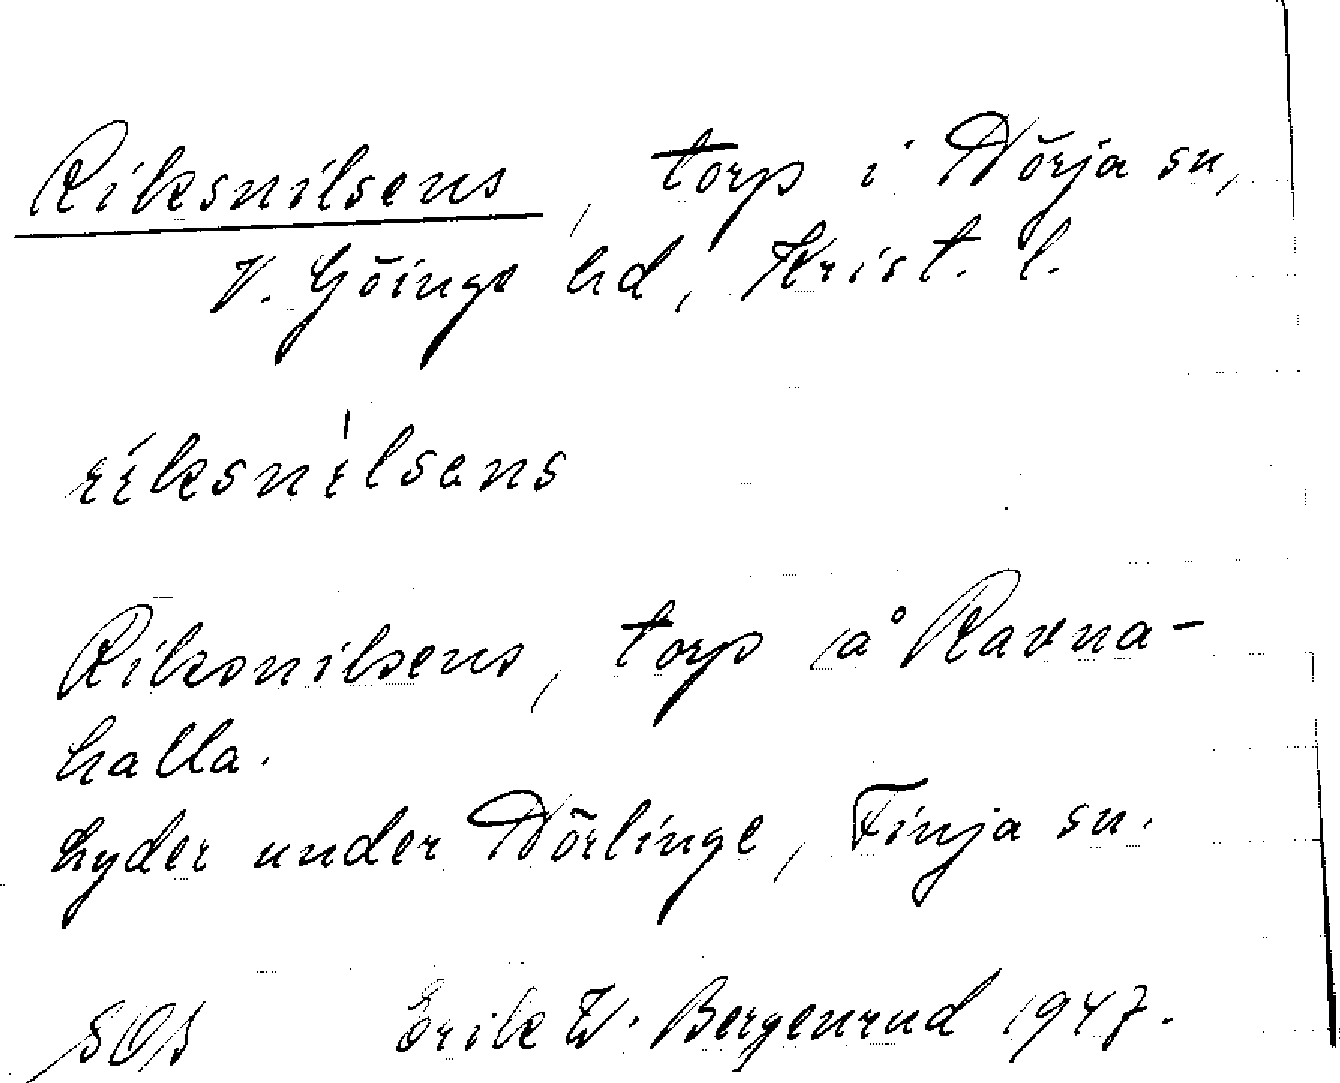 Riksnilsens, torp i Nörja sn,
V. Göinge hd, Krist. l.
riksnilsens
Riksnilsens, torp å Ravna-
halla.
Lyder under Nörlinge, Finja sn.
SOS Erik W. Bergenrud 1947.